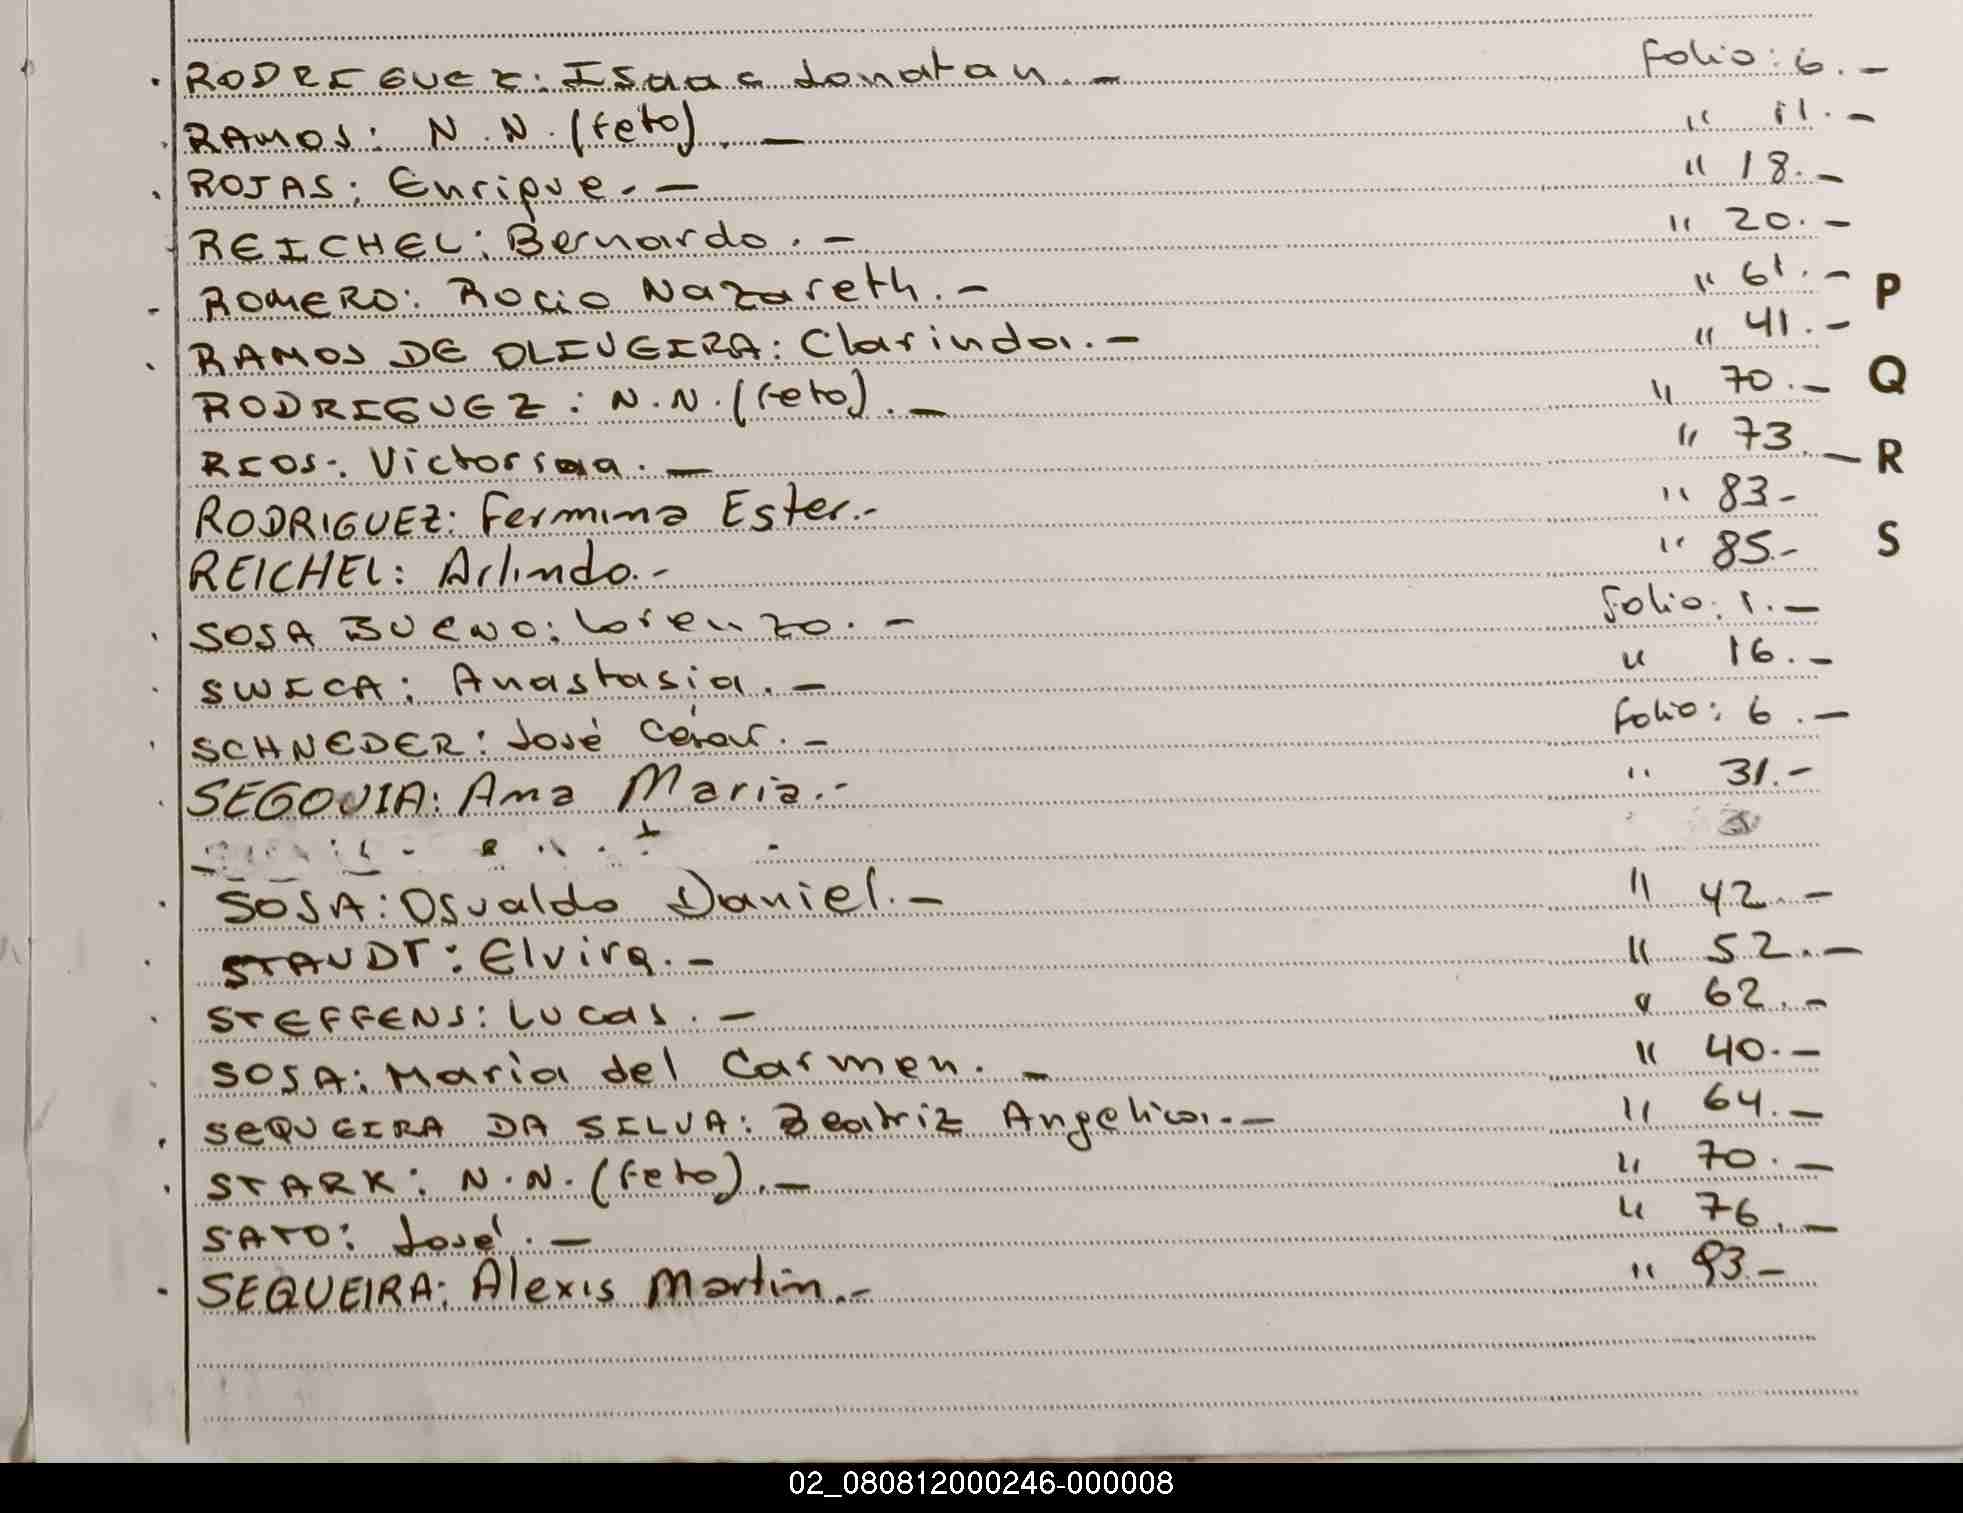 RODRIGUEZ: Isaac Jonatan.- folio: 6.-
RAMOS: N.N.(feto).- " 11.-
ROJAS: Enrique.- " 18.-
REICHEL: Bernardo.- " 20.-
ROMERO: Rocio Nazareth.- " 61.-
RAMOS DE OLIVEIRA: Clarinda.- " 41.-
RODRIGUEZ: N.N.(feto).- " 70.-
RIOS: .- " 73.-
RODRIGUEZ: Fermina Ester.- " 83-
REICHEL: Arlindo.- " 85.-
SOSA BUENO: Lorenzo.- folio: 1.-
SWICA: Anastasia.- " 16.-
SCHNEDER: José César.- folio: 6.-
SEGOVIA: Ana Maria.- " 31.-
SOSA: Osvaldo Daniel.- " 42.-
STAUDT: Elvira.- " 52.-
STEFFENS: Lucas.- " 62.-
SOSA: Maria del Carmen.- " 40.-
SEQUEIRA DA SILVA: Beatriz Angelica.- " 64.-
STARK: N.N.(feto).- " 70.-
SATO: José.- " 76.-
SEQUEIRA: Alexis Martin.- " 93-
P
Q
R
S
02_080812000246-000008